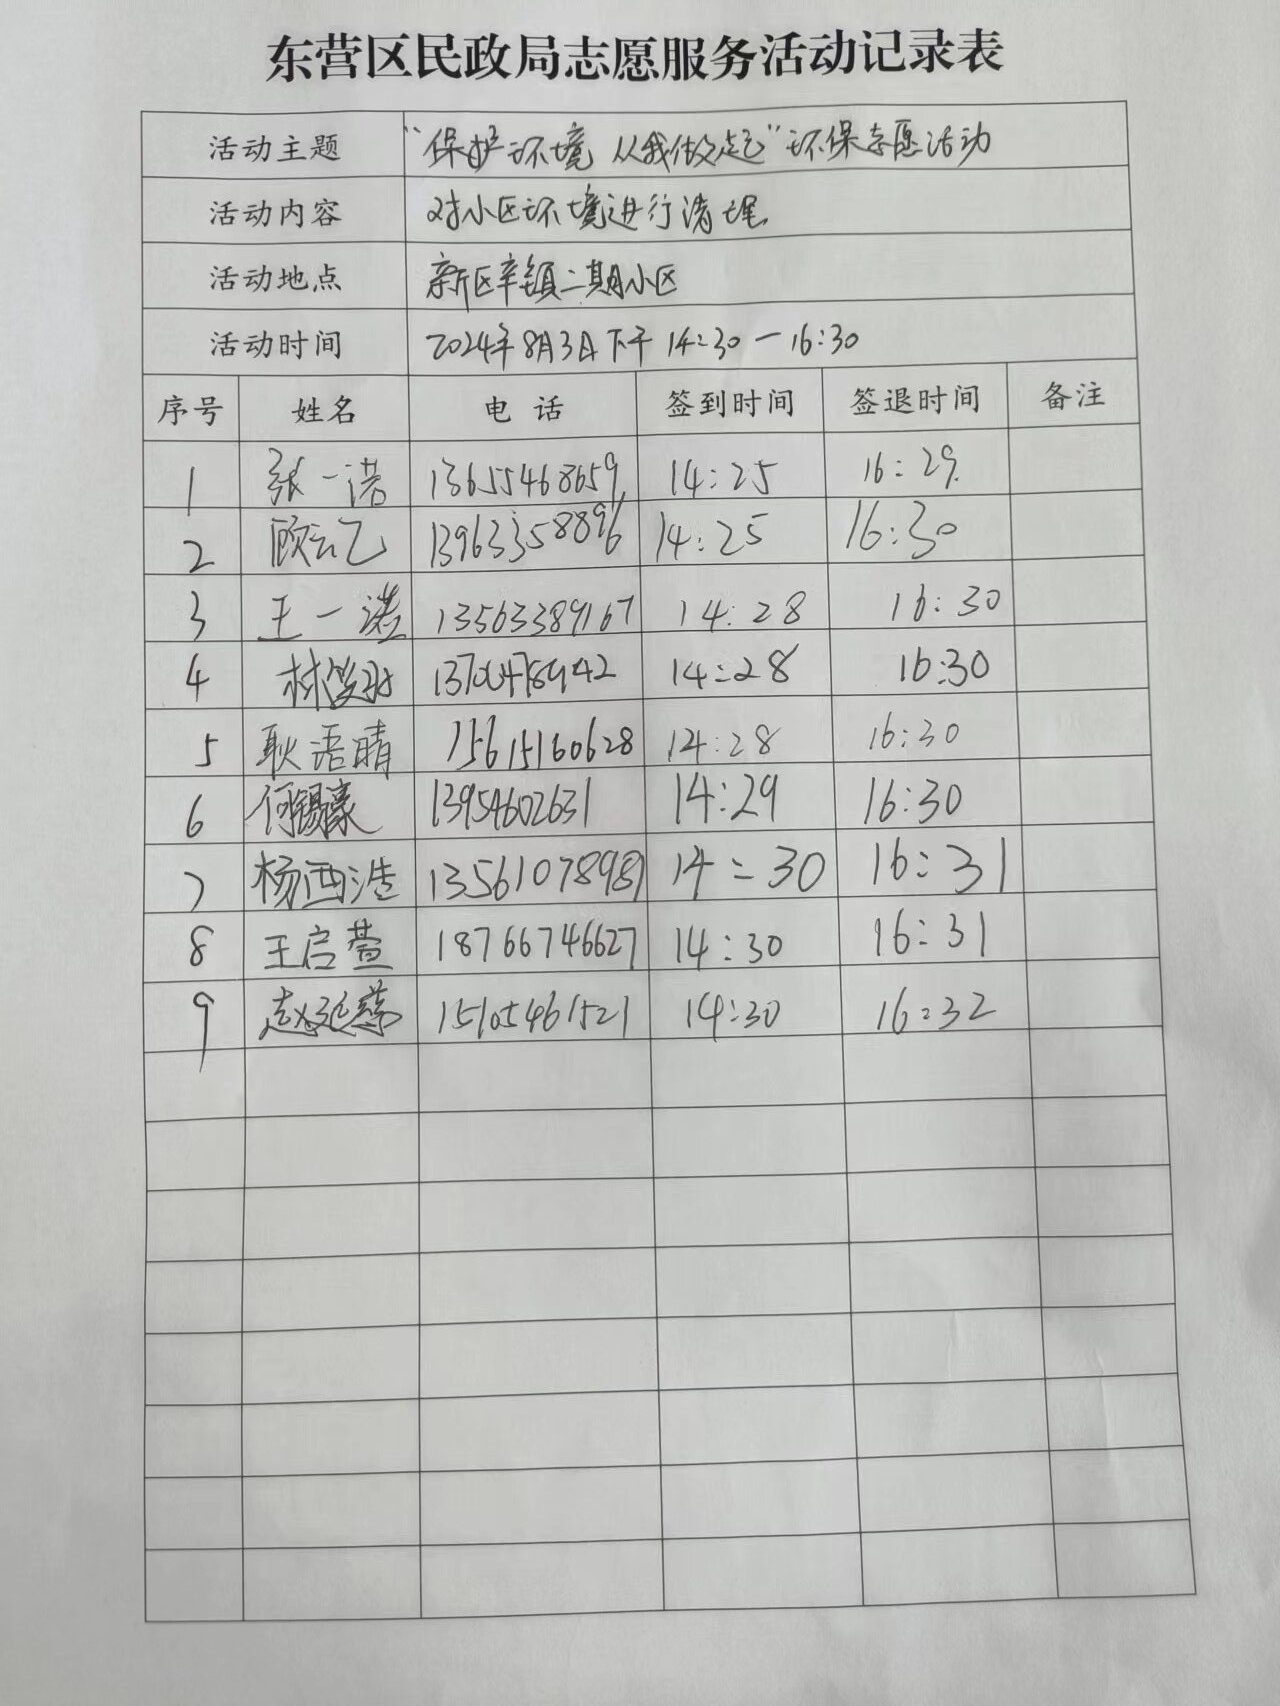 东营区民政局志愿服务活动记录表
活动主题 “保护环境 从我做起”环保志愿活动
活动内容 对小区环境进行清理.
活动地点 新区辛镇二期小区
活动时间 2024年8月3日下午 14:30一16:30
序号 姓名 电 话 签到时间 签退时间 备注
1 张一诺 13655468659 14:25 16:29.
2 顾云乙 13963358896 14:25 16:30
3 王一诺 13563389167 14:28 16:30
4 14:28 16:30
5 耿语晴 15615160628 14:28 16:30
6 何锡豪 13954602631 14:29 16:30
7 杨西浩 14:30 16:31
8 王启萱 18766746627 14:30 16:31
9 15105461521 14:30 16:32